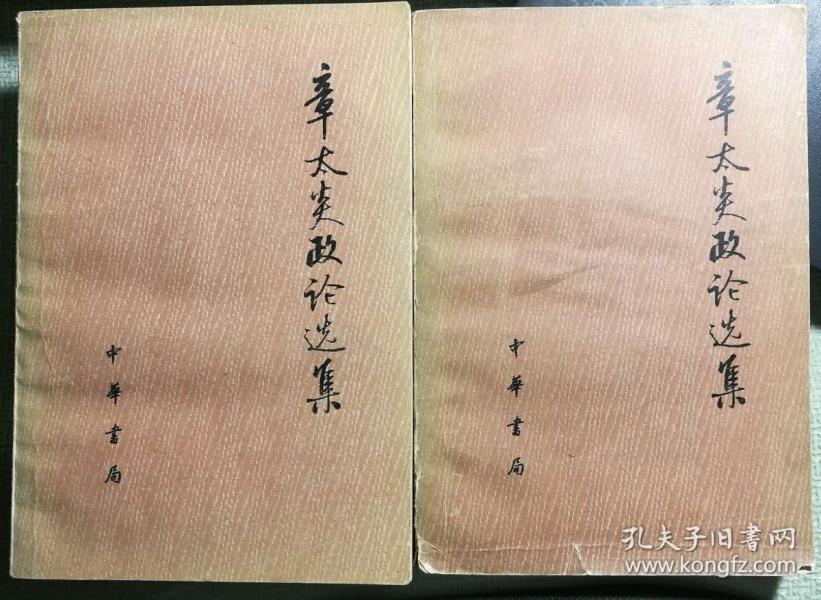 章太炎政论选集
中華書局
章太炎政论选集
中華書局
孔夫子旧书网
www.kongfz.com